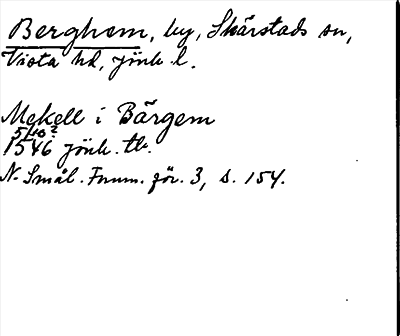 Berghem, by, Skärstads sn,
Vista hd, Jönk. l.
Mekell i Bärgem
5/10 ?
1546 Jönk. tb.
N. Smål. Fornm. för. 3, s. 154.